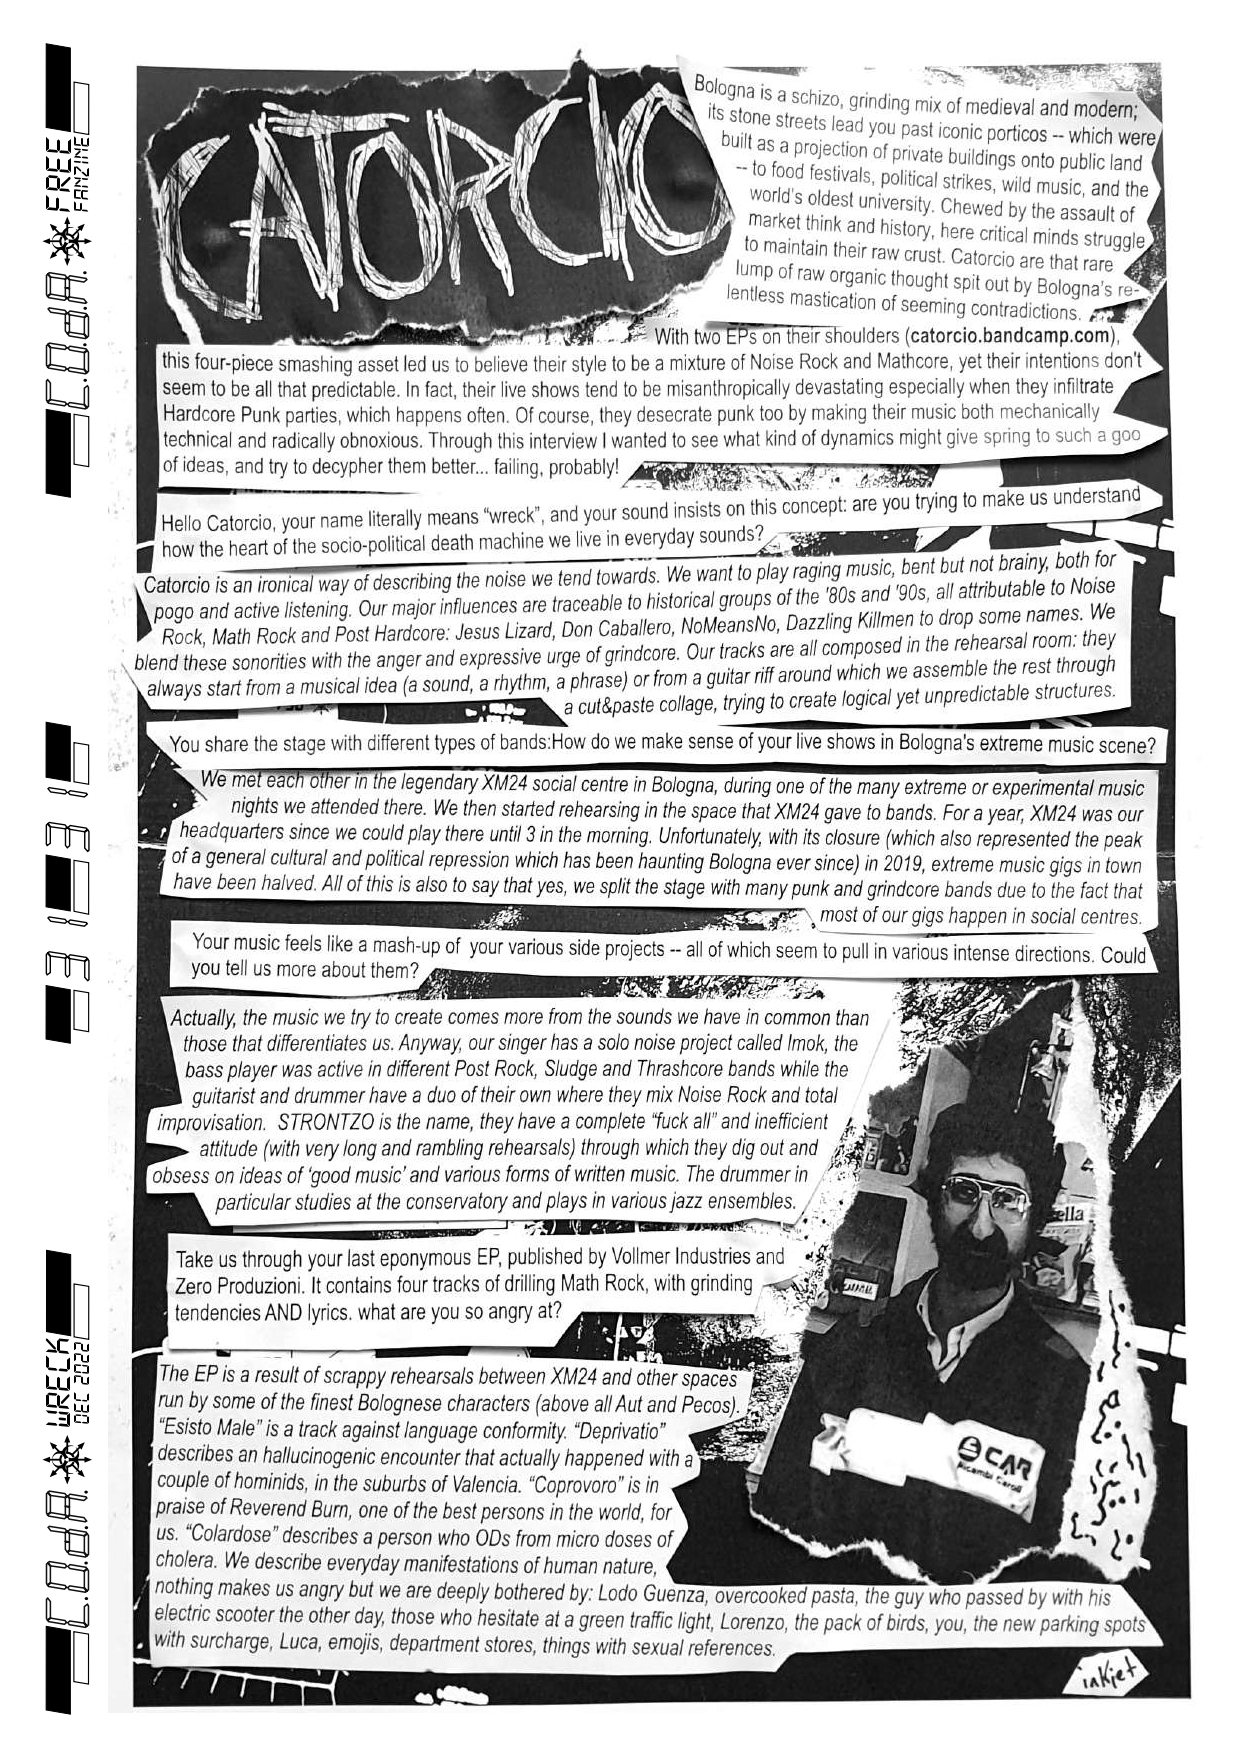 CATORCIO
Bologna is a schizo, grinding mix of medieval and modern;
its stone streets lead you past iconic porticos -- which were
built as a projection of private buildings onto public land
-- to food festivals, political strikes, wild music, and the
world's oldest university. Chewed by the assault of
market think and history, here critical minds struggle
to maintain their raw crust. Catorcio are that rare
lump of raw organic thought spit out by Bologna's re-
lentless mastication of seeming contradictions.
With two EPs on their shoulders (catorcio.bandcamp.com),
this four-piece smashing asset led us to believe their style to be a mixture of Noise Rock and Mathcore, yet their intentions don't
seem to be all that predictable. In fact, their live shows tend to be misanthropically devastating especially when they infiltrate
Hardcore Punk parties, which happens often. Of course, they desecrate punk too by making their music both mechanically
technical and radically obnoxious. Through this interview I wanted to see what kind of dynamics might give spring to such a goo
of ideas, and try to decypher them better... failing, probably!
Hello Catorcio, your name literally means “wreck”, and your sound insists on this concept: are you trying to make us understand
how the heart of the socio-political death machine we live in everyday sounds?
Catorcio is an ironical way of describing the noise we tend towards. We want to play raging music, bent but not brainy, both for
pogo and active listening. Our major influences are traceable to historical groups of the '80s and '90s, all attributable to Noise
Rock, Math Rock and Post Hardcore: Jesus Lizard, Don Caballero, NoMeansNo, Dazzling Killmen to drop some names. We
blend these sonorities with the anger and expressive urge of grindcore. Our tracks are all composed in the rehearsal room: they
always start from a musical idea (a sound, a rhythm, a phrase) or from a guitar riff around which we assemble the rest through
a cut&paste collage, trying to create logical yet unpredictable structures.
You share the stage with different types of bands:How do we make sense of your live shows in Bologna's extreme music scene?
We met each other in the legendary XM24 social centre in Bologna, during one of the many extreme or experimental music
nights we attended there. We then started rehearsing in the space that XM24 gave to bands. For a year, XM24 was our
headquarters since we could play there until 3 in the morning. Unfortunately, with its closure (which also represented the peak
of a general cultural and political repression which has been haunting Bologna ever since) in 2019, extreme music gigs in town
have been halved. All of this is also to say that yes, we split the stage with many punk and grindcore bands due to the fact that
most of our gigs happen in social centres.
Your music feels like a mash-up of your various side projects -- all of which seem to pull in various intense directions. Could
you tell us more about them?
Actually, the music we try to create comes more from the sounds we have in common than
those that differentiates us. Anyway, our singer has a solo noise project called Imok, the
bass player was active in different Post Rock, Sludge and Thrashcore bands while the
guitarist and drummer have a duo of their own where they mix Noise Rock and total
improvisation. STRONTZO is the name, they have a complete “fuck all” and inefficient
attitude (with very long and rambling rehearsals) through which they dig out and
obsess on ideas of ‘good music’ and various forms of written music. The drummer in
particular studies at the conservatory and plays in various jazz ensembles.
Take us through your last eponymous EP, published by Vollmer Industries and
Zero Produzioni. It contains four tracks of drilling Math Rock, with grinding
tendencies AND lyrics. what are you so angry at?
The EP is a result of scrappy rehearsals between XM24 and other spaces
run by some of the finest Bolognese characters (above all Aut and Pecos).
“Esisto Male” is a track against language conformity. “Deprivatio”
describes an hallucinogenic encounter that actually happened with a
couple of hominids, in the suburbs of Valencia. “Coprovoro” is in
praise of Reverend Burn, one of the best persons in the world, for
us. “Colardose” describes a person who ODs from micro doses of
cholera. We describe everyday manifestations of human nature,
nothing makes us angry but we are deeply bothered by: Lodo Guenza, overcooked pasta, the guy who passed by with his
electric scooter the other day, those who hesitate at a green traffic light, Lorenzo, the pack of birds, you, the new parking spots
with surcharge, Luca, emojis, department stores, things with sexual references.
ella
CAR
Ricambi Caroli
inkjet
C.O.d.A. FREE
FANZINE
C.O.d.A. WRECK
DEC 2022